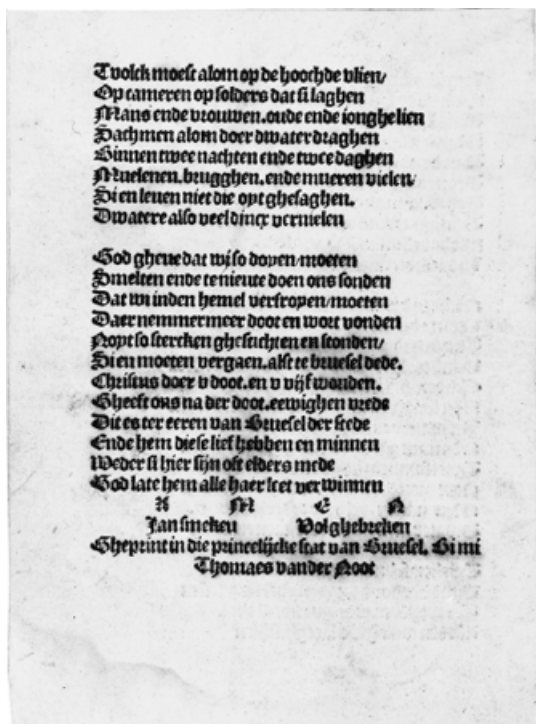 Tvolck moest alom op de hoochde vlien/
Op cameren op solders dat si laghen
Mans ende vrouwen. oude ende ionghe lien
Sachmen alom doer dwater draghen
Binnen twee nachten ende twee daghen
Muelenen. brugghen. ende mueren vielen/
Si en leven niet die oyt ghesaghen.
Dwatere also veel dincx vernielen

God gheve dat wij so doyen/moeten
Smelten ende te nieute doen ons sonden
Dat wi inden hemel versroyen/moeten
Daer nemmermeer doot en wort vonden
Noyt so stercken ghestichten en stonden/
Si en moeten vergaen. alst te bruesel dede.
Christus doer v doot. en v vijf wonden.
Gheeft ons na der doot. eewighen vrede
Dit es ter eeren van Bruesel der stede
Ende hem diese lief hebben en minnen
Weder si hier sijn oft elders mede
God late hem alle haer leet verwinnen
A M E N
Jan smeken Volghebreken
Gheprint in die princelijcke stat van Bruesel. Bi mi
Thomaes vander Noot